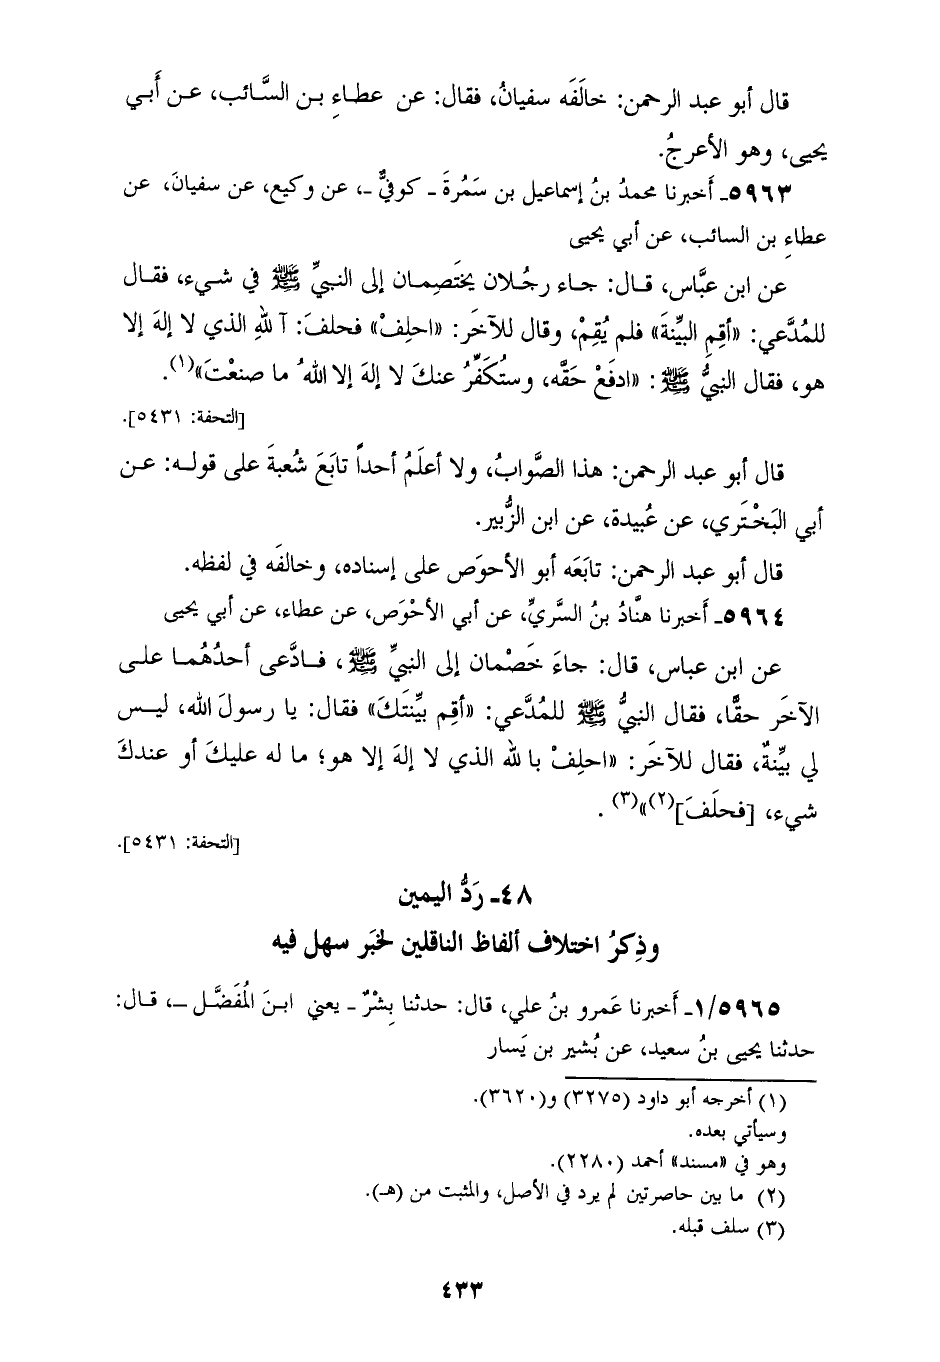 قال أبو عبد الرحمن: خالَفَه سفيانُ، فقال: عن عطاءِ بن السَّائب، عن أَبي
يحيى، وهو الأعرجُ.
٥٩٦٣ـ أَخبرنا محمدُ بنُ إسماعيل بن سَمُرةَ ـ كوفيٌّ ـ، عن وكيع، عن سفيانَ، عن
عطاءِ بن السائب، عن أبي يحيى
عن ابن عبَّاس، قال: جاء رجُلان يختَصِمان إلى النبيِّ ﷺ في شيء، فقال
للمُدَّعي: «أَقِمِ البيِّنةَ» فلم يُقِمْ، وقال للآخَر: «احلِفْ» فحلفَ: آللهِ الذي لا إلهَ إلا
هو، فقال النبيُّ ﷺ: «ادفَعْ حَقَّه، وستُكَفِّرُ عنكَ لا إلهَ إلا اللهُ ما صنعْتَ»(١).
[التحفة: ٥٤٣١].
قال أبو عبد الرحمن: هذا الصَّوابُ، ولا أعلَمُ أحداً تابَعَ شُعبةَ على قوله: عن
أبي البَخْتَري، عن عُبيدة، عن ابن الزُّبير.
قال أبو عبد الرحمن: تابَعَه أبو الأحوَص على إسناده، وخالفَه في لفظه.
٥٩٦٤ـ أَخبرنا هنَّادُ بنُ السَّريِّ، عن أبي الأحْوَص، عن عطاء، عن أبي يحيى
عن ابن عباس، قال: جاءَ خَصْمان إلى النبيِّ ﷺ، فادَّعى أحدُهُما على
الآخَر حقًّا، فقال النبيُّ ﷺ للمُدَّعي: «أَقِم بيِّنتَكَ» فقال: يا رسولَ الله، ليس
لي بيِّنةٌ، فقال للآخَر: «احلِفْ بالله الذي لا إلهَ إلا هو؛ ما له عليكَ أو عندكَ
شيء، [فحلَفَ](٢)»(٣).
[التحفة: ٥٤٣١].
٤٨ـ رَدُّ اليمين
وذِكرُ اختلاف ألفاظ الناقلين لخبَر سهل فيه
١/٥٩٦٥ـ أَخبرنا عَمرو بنُ علي، قال: حدثنا بِشْرٌ ـ يعني ابنَ المُفَضَّل ـ، قال:
حدثنا يحيى بنُ سعيد، عن بُشَير بن يَسار
(١) أخرجه أبو داود (٣٢٧٥) و(٣٦٢٠).
وسيأتي بعده.
وهو في «مسند» أحمد (٢٢٨٠).
(٢) ما بين حاصرتين لم يرد في الأصل، والمثبت من (هـ).
(٣) سلف قبله.
٤٣٣